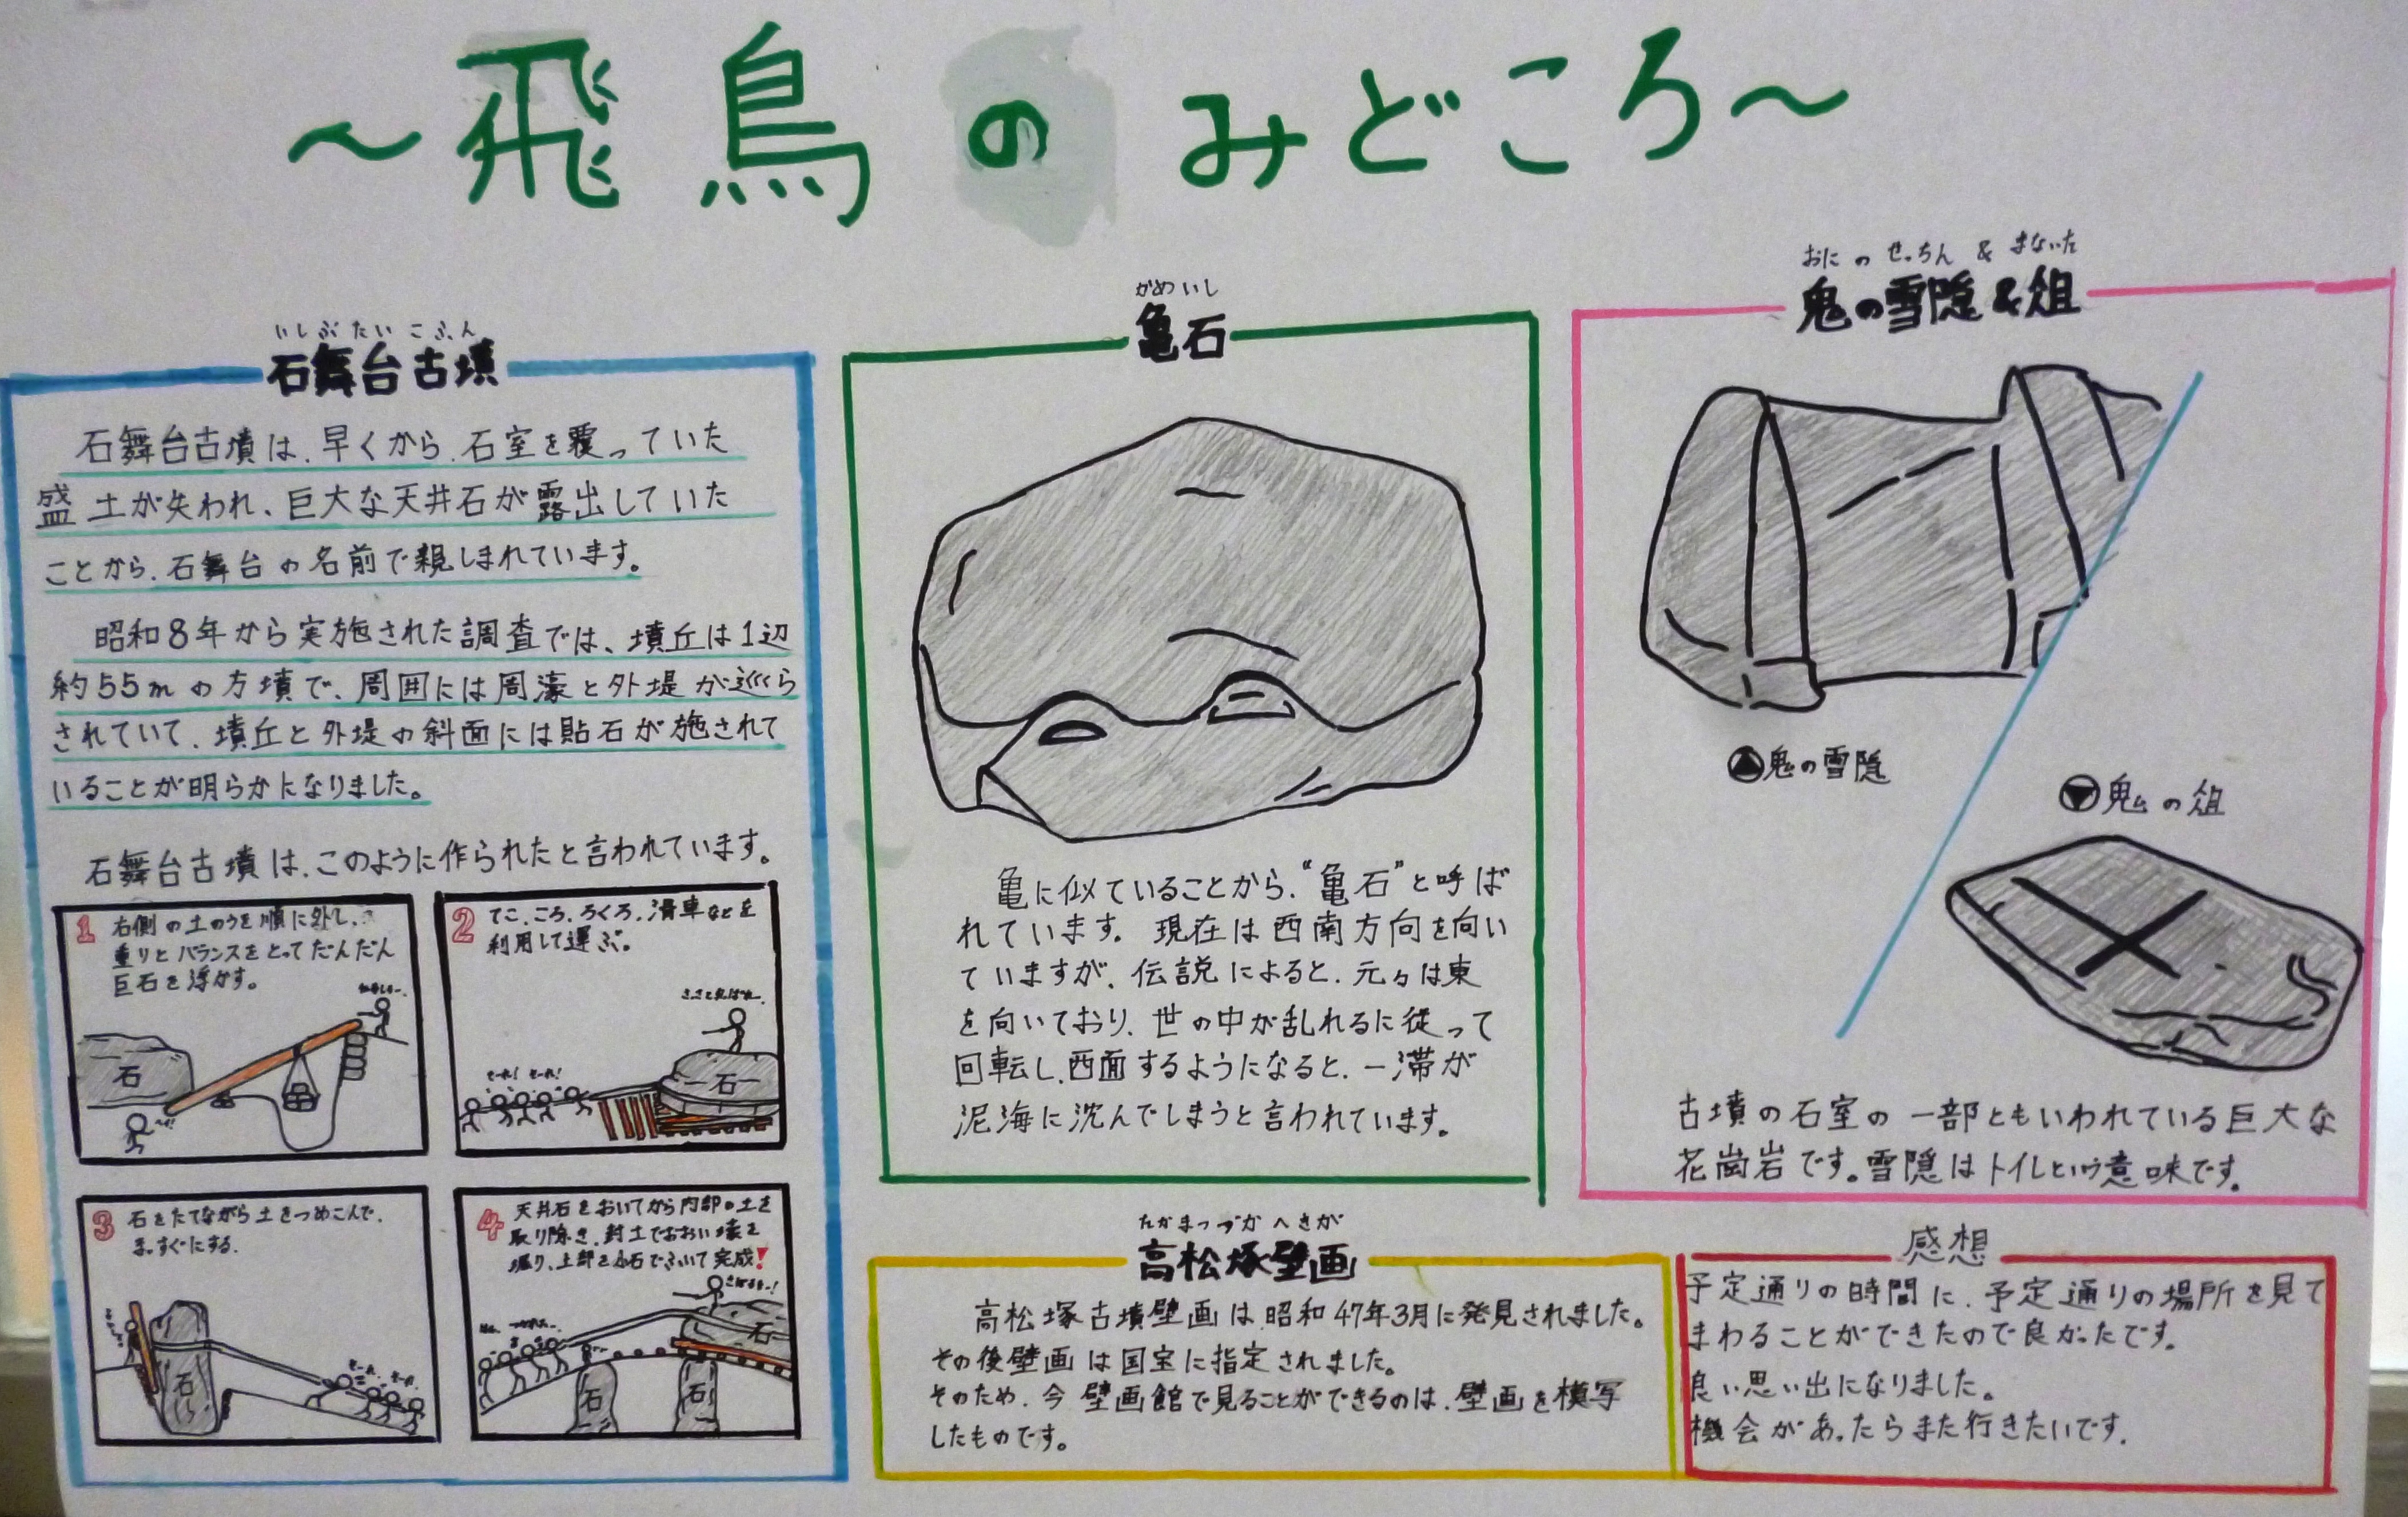 ～飛鳥のみどころ～
いしぶたいこふん
石舞台古墳
石舞台古墳は、早くから、石室を覆っていた
盛土が失われ、巨大な天井石が露出していた
ことから、石舞台の名前で親しまれています。
昭和8年から実施された調査では、墳丘は1辺
約55mの方墳で、周囲には周濠と外堤が巡ら
されていて、墳丘と外堤の斜面には貼石が施されて
いることが明らかになりました。
石舞台古墳は、このように作られたと言われています。
1 右側の土のうを順に外し、
重りとバランスをとってだんだん
巨石を浮かす。
石
2 てこ、ころ、ろくろ、滑車などを
利用して運ぶ。
せーの! せーの!
石
3 石をたてながら土をつめこんで、
まっすぐにする。
石
4 天井石をおいてから内部の土を
取り除き、封土でおおい壕を
掘り、上部を小石でふいて完成!
石
石
石
かめいし
亀石
亀に似ていることから、“亀石”と呼ば
れています。現在は西南方向を向い
ていますが、伝説によると、元々は東
を向いており、世の中が乱れるに従って
回転し、西面するようになると、一滞が
泥海に沈んでしまうと言われています。
おにのせっちん&まないた
鬼の雪隠&俎
▲鬼の雪隠
▼鬼の俎
古墳の石室の一部ともいわれている巨大な
花崗岩です。雪隠はトイレという意味です。
たかまつづかへきが
高松塚壁画
高松塚古墳壁画は、昭和47年3月に発見されました。
その後壁画は国宝に指定されました。
そのため、今壁画館で見ることができるのは、壁画を模写
したものです。
感想
予定通りの時間に、予定通りの場所を見て
まわることができたので良かったです。
良い思い出になりました。
機会があったらまた行きたいです。